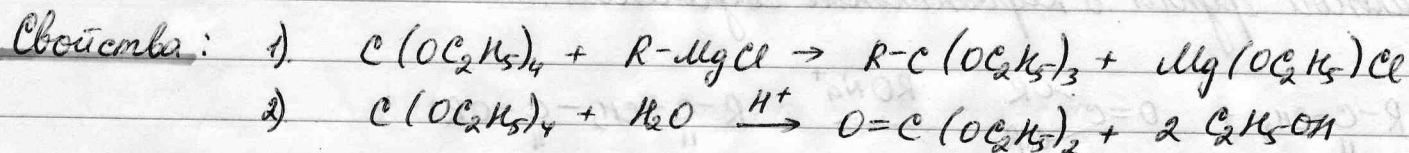 Свойства: 1). C(OC₂H₅)₄ + R-MgCl → R-C(OC₂H₅)₃ + Mg(OC₂H₅)Cl
2) C(OC₂H₅)₄ + H₂O —H⁺→ O=C(OC₂H₅)₂ + 2 C₂H₅OH